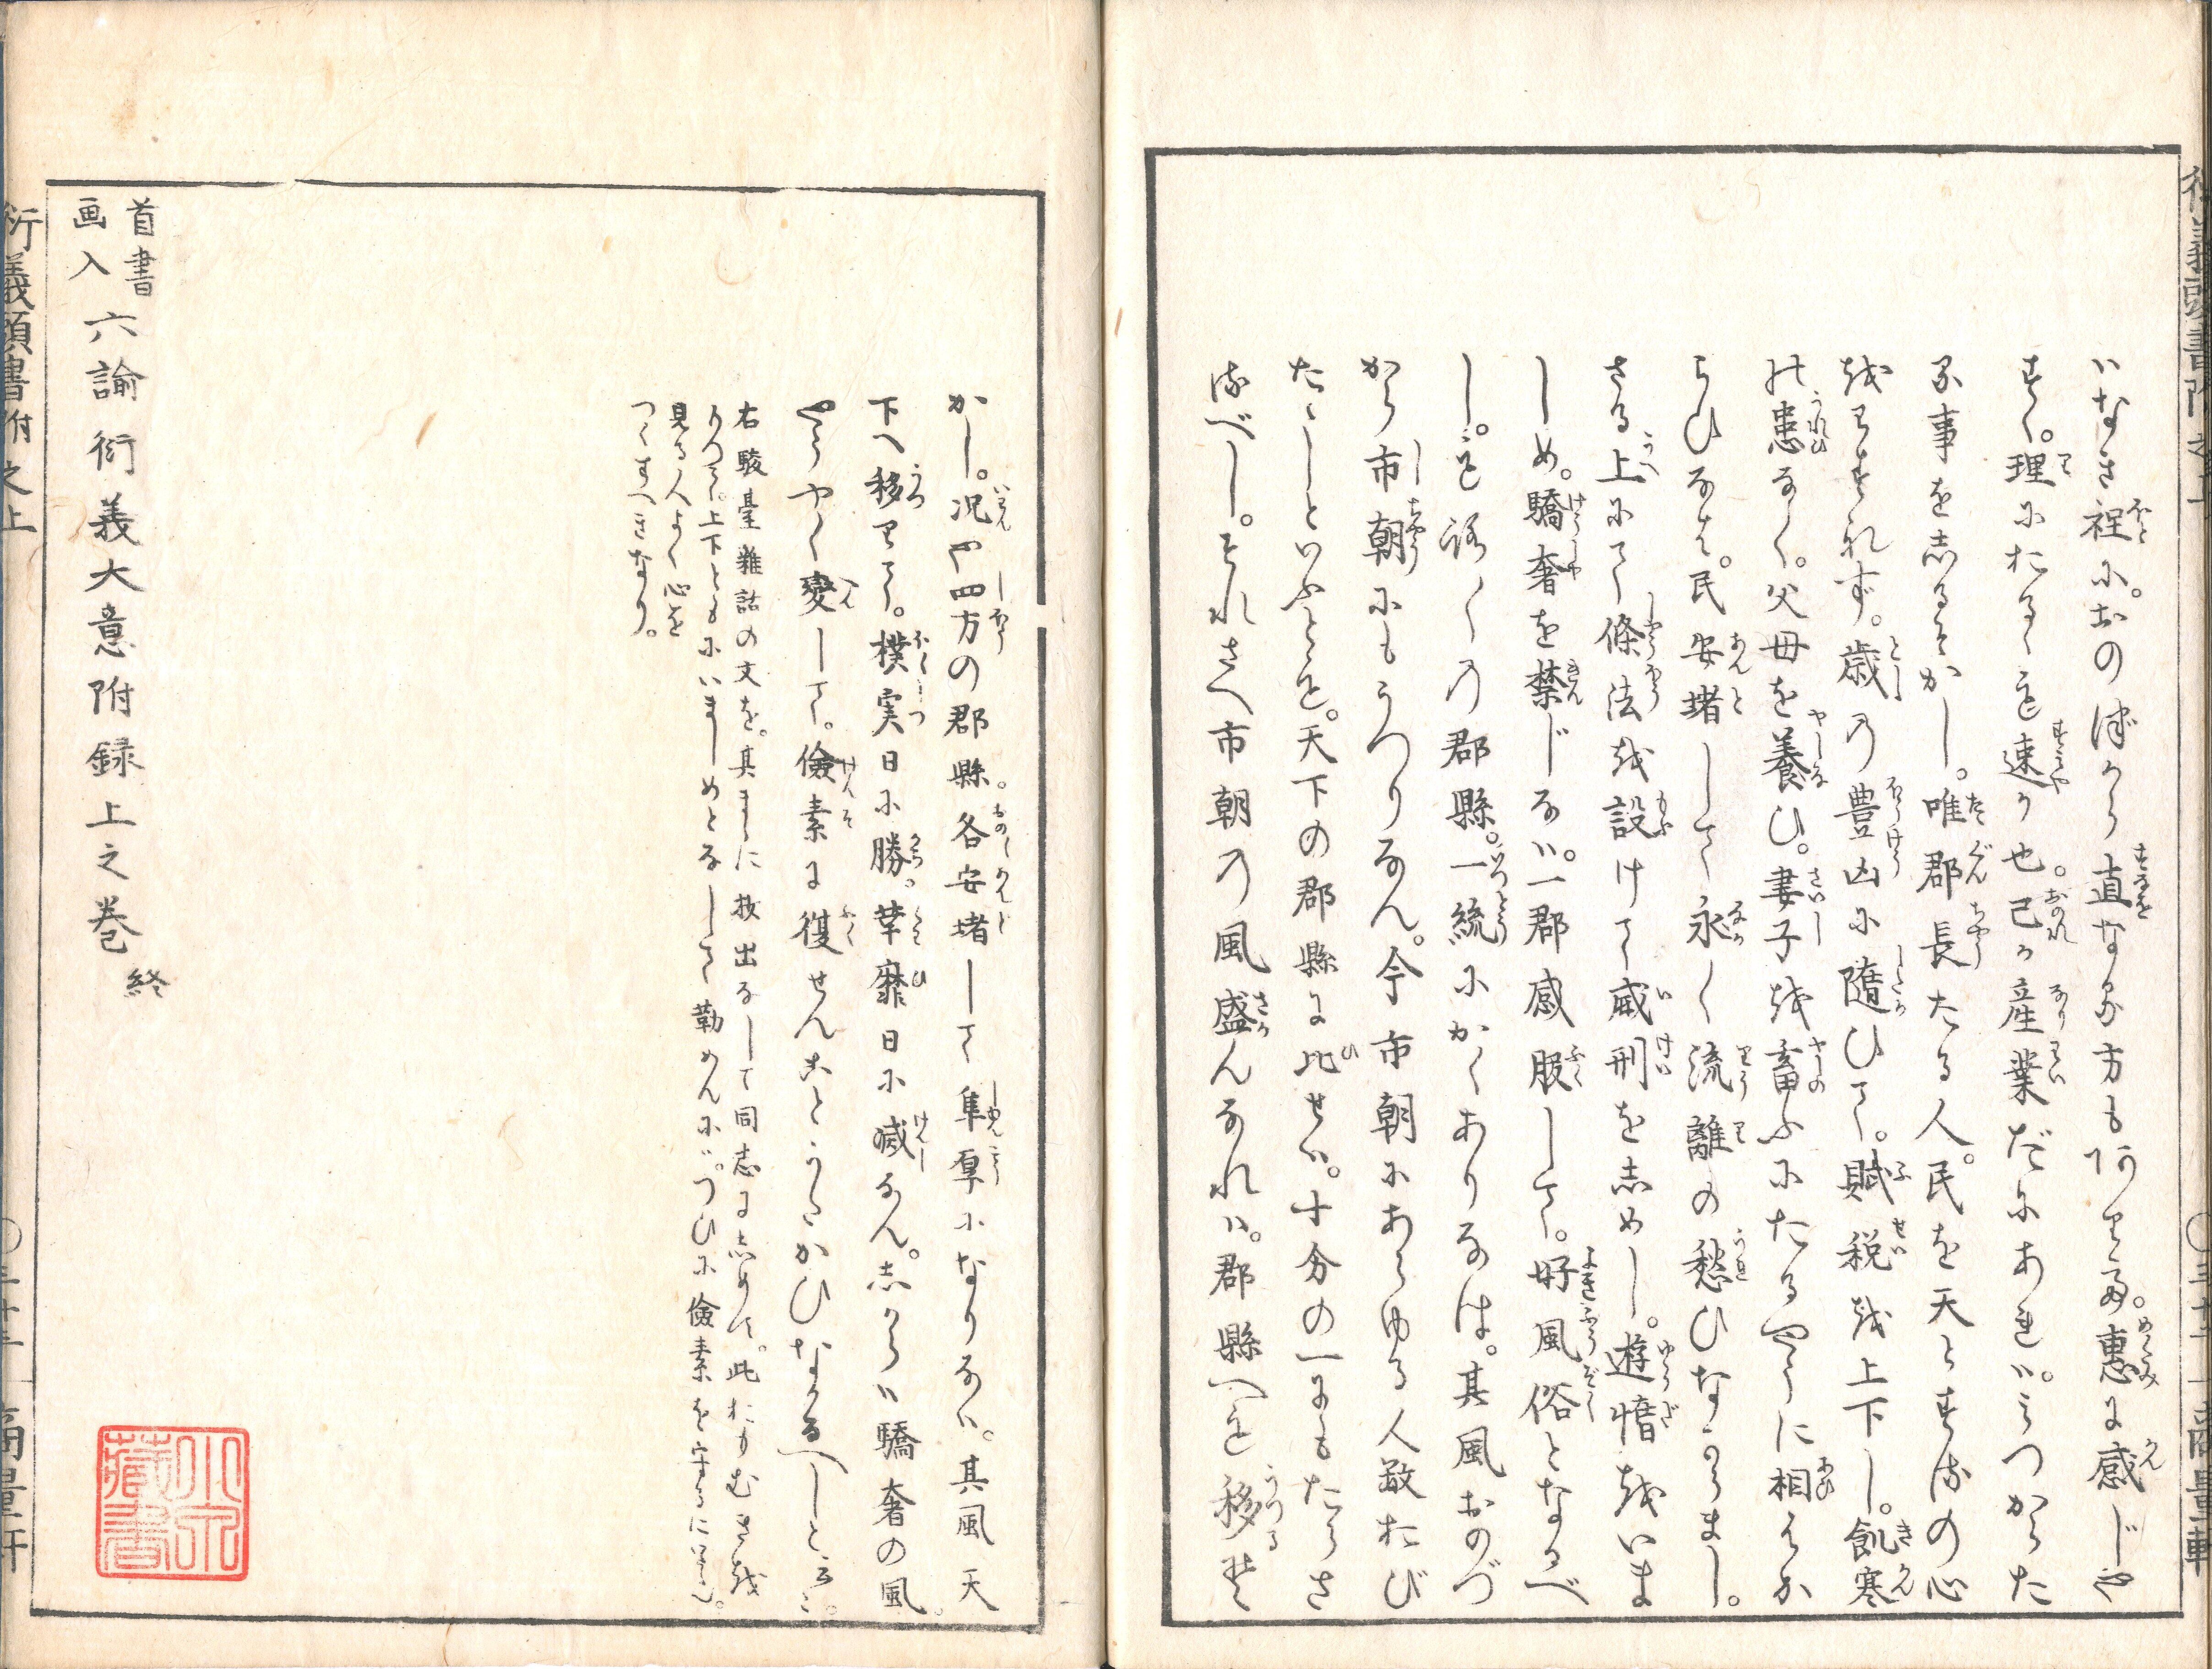 いなき程に。おのづから直なる方もありて。惠に感じや
すく。理にたること速か也。己が産業だにあれば。みづからた
る事をしるぞかし。唯郡長たる人。民を天とする の心
をわすれず。歳の豊凶に随ひて。賦税を上下し。飢寒
の患なく。父母を養ひ。妻子を畜ふにたるやうに相はか
らひなば。民安堵して永く流離の愁ひなからまし。
さる上にて條法を設けて威刑をしめし。遊惰をいま
しめ。驕奢を禁じなば。一郡感服して。好風俗となるべ
し。もし諸の郡縣。一統にかくありなば。其風おのづ
から市朝にもうつりなん。今市朝にあらゆる人数おび
たゝしといふとも。天下の郡縣に比せば。十分の一にもたらさ
るべし。それさへ市朝の風盛んなれば。郡縣へも移るぞ
かし。况や四方の郡縣。各安堵して隼厚になりなば。其風天
下へ移りて。樸実日に勝。華靡日に减なん。しからば驕奢の風。
やうやく變して。儉素に復せんことうたがひなかるべしと云々。
右駿臺雑話の文を。其まゝに抜出なして同志にしめす。此おもむきを
もつて。上下ともにいましめとなして勤めんにば。つひに儉素を守るにいたらん。
見る人よく心を
つくすへきなり。
首書
画入 六諭衍義大意附録上之巻 終
衍義頭書附之上
小泉
藏書